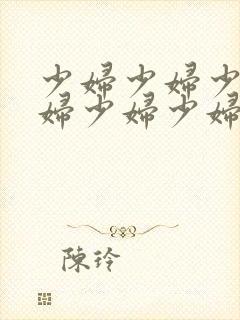 少婦少婦少
婦少婦少婦
陳玲